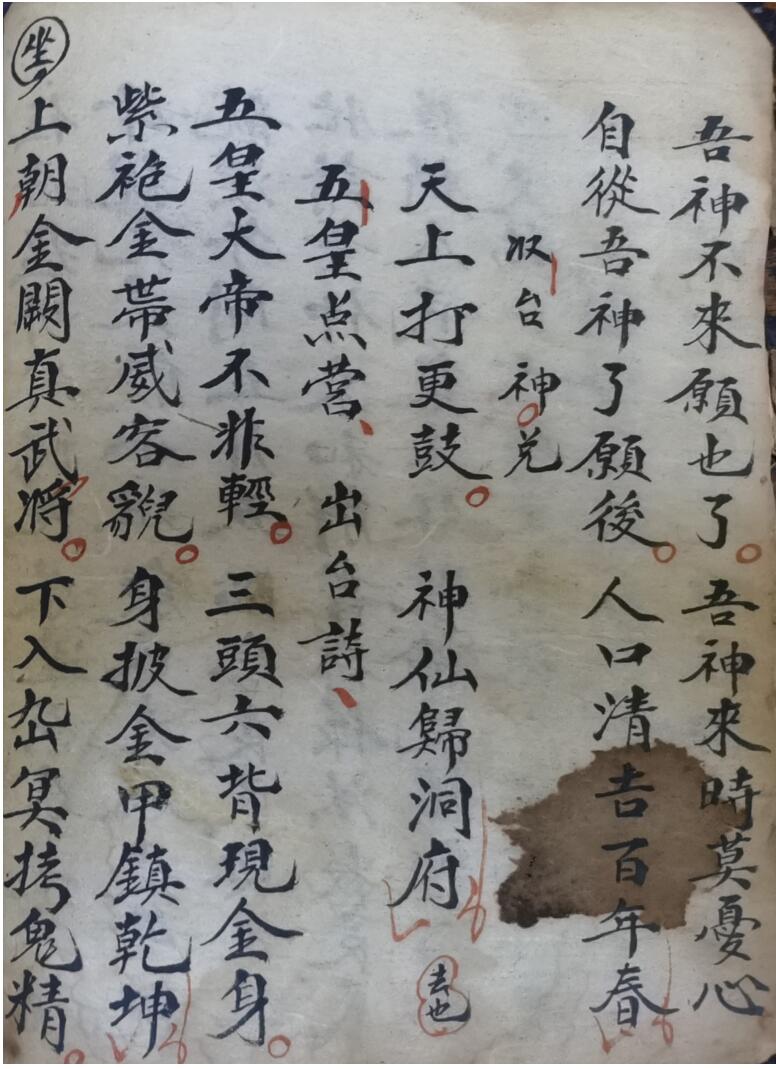 吾神不來願也了。吾神來時莫憂心
自從吾神了願後。人口清吉百年春
収台神兌
天上打更鼓。神仙歸洞府 去也
五皇点營、出台詩、
五皇大帝不非輕。三頭六背現金身。
紫袍金帶威容貌。身披金甲鎮乾坤
坐 上朝金闕真武將。下入冥拷鬼精。